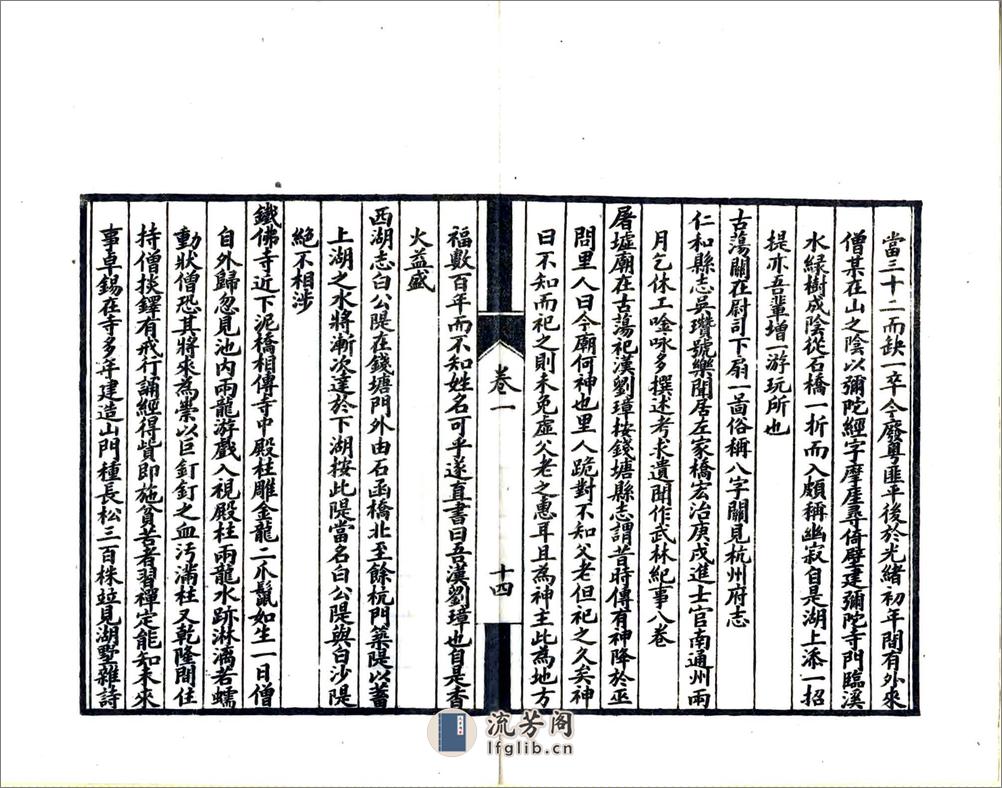 當三十二而缺一卒今廢粵匪平後於光緒初年間有外來
僧某在山之陰以彌陀經字摩崖尋倚壁建彌陀寺門臨溪
水緑樹成陰從石橋一折而入頗稱幽寂自是湖上添一招
提亦吾輩增一游玩所也
古蕩關在尉司下扇一啚俗稱八字關見杭州府志
仁和縣志吳瓚號樂閒居左家橋宏治庚戌進士官南通州兩
月乞休工唫咏多撰述考求遺聞作武林紀事八卷
屠墟廟在古蕩祀漢劉璋按錢塘縣志謂昔時傳有神降於巫
問里人曰今廟何神也里人跪對不知父老但祀之久矣神
曰不知而祀之則未免虛父老之惠耳且為神主此為地方
卷一
十四
福數百年而不知姓名可乎遂直書曰吾漢劉璋也自是香
火益盛
西湖志白公隄在錢塘門外由石函橋北至餘杭門築隄以蓄
上湖之水將漸次達於下湖按此隄當名白公隄與白沙隄
絶不相涉
鐵佛寺近下泥橋相傳寺中殿柱雕金龍二爪鬣如生一日僧
自外歸忽見池內兩龍游戲入視殿柱兩龍水跡淋漓若蠕
動狀僧恐其將來為祟以巨釘釘之血污滿柱又乾隆間住
持僧掞鐸有戒行誦經得貲即施貧苦者習禪定能知未來
事卓錫在寺多年建造山門種長松三百株竝見湖墅雜詩
流芳阁
lfglib.cn